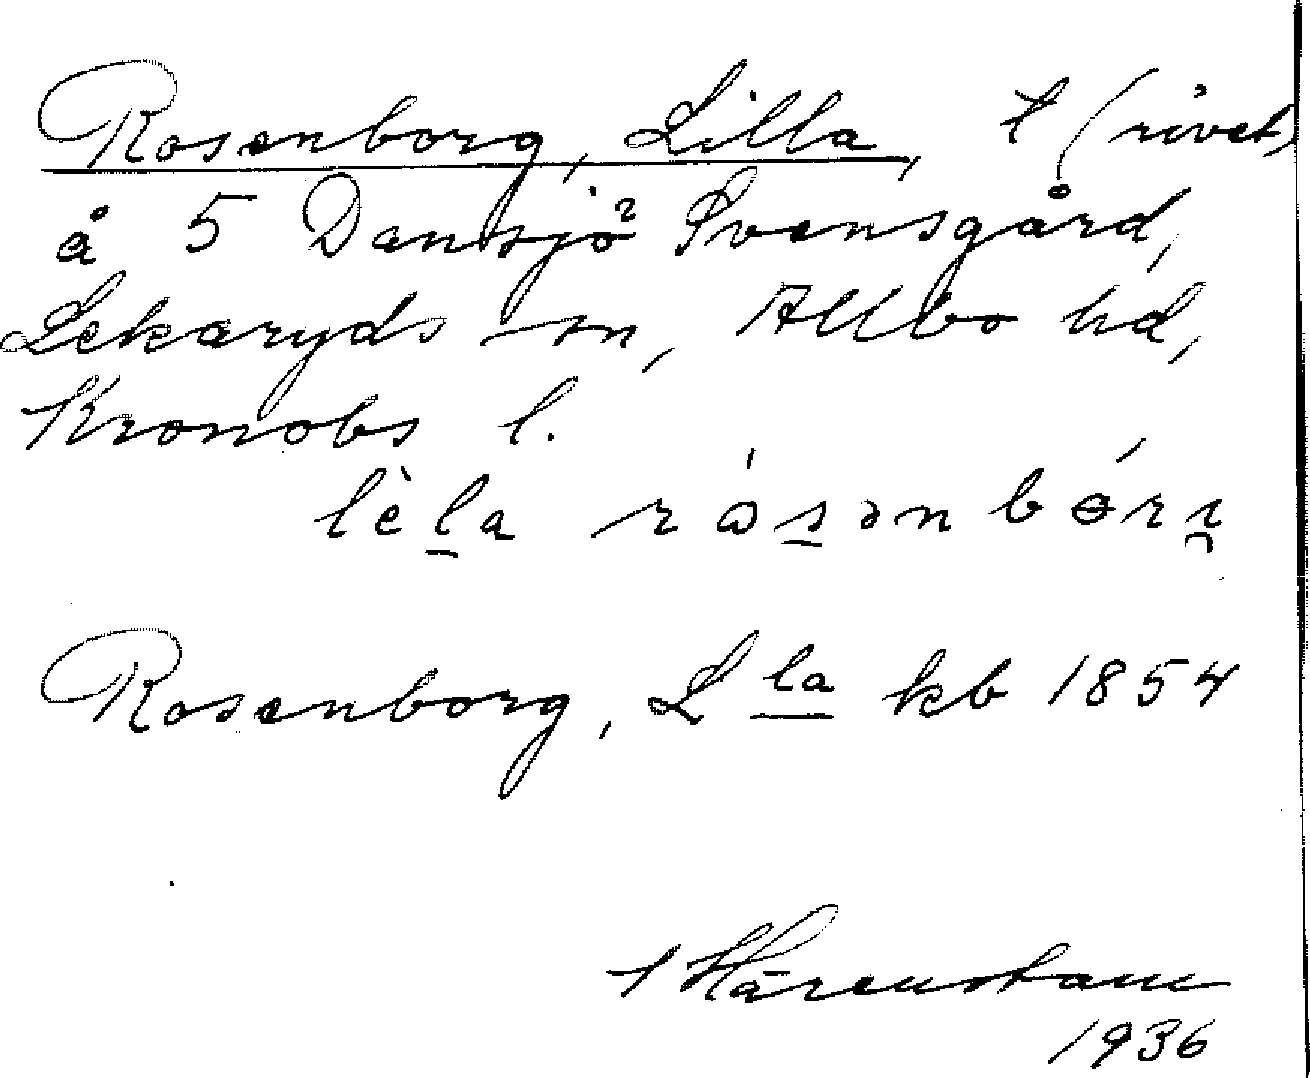 Rosenborg, Lilla, t (rivet)
å 5 Dansjö Svensgård,
Lekaryds sn, Allbo hd,
Kronobs l.
lèla rósənbórɪ
Rosenborg, L la kb 1854
Härenstam
1936